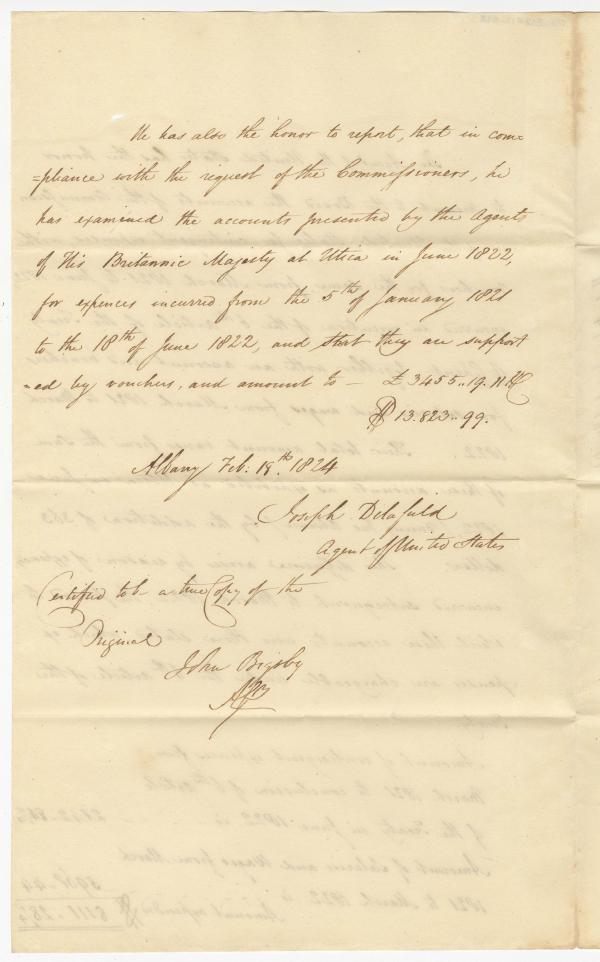 He has also the honor to report, that in com=
=pliance with the request of the Commissioners, he
has examined the accounts presented by the Agents
of His Britannic Majesty at Utica in June 1822,
for expences incurred from the 5th of January 1821
to the 18th of June 1822, and that they are support
=ed by vouchers, and amount to — £ 3455..19.11
$ 13.823..99.
Albany Feb: 18th. 1824
Joseph Delafield
Agent of United States
Certified to be a true Copy of the
Original
John Bigsby